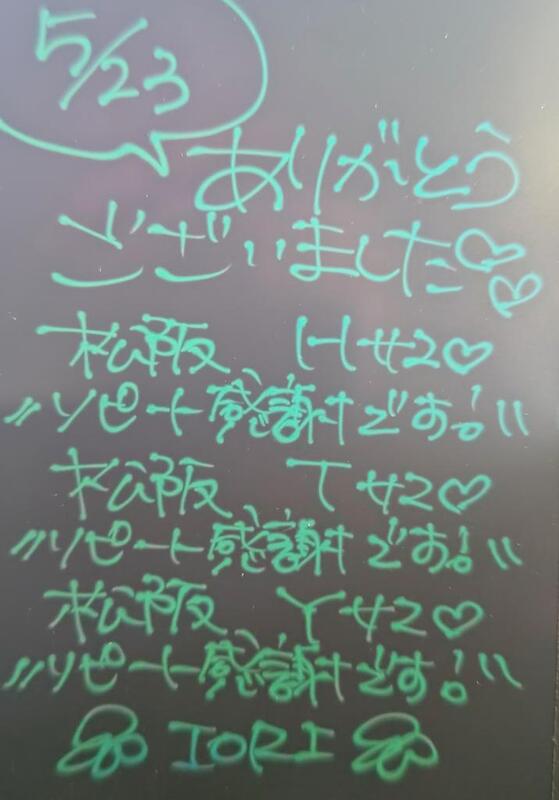 5/23
ありがとう
ございました♡♡
松阪 H女2♡
〃リピート感謝です!〃
松阪 T女2♡
〃リピート感謝です!〃
松阪 Y女2♡
〃リピート感謝です!〃
IORI